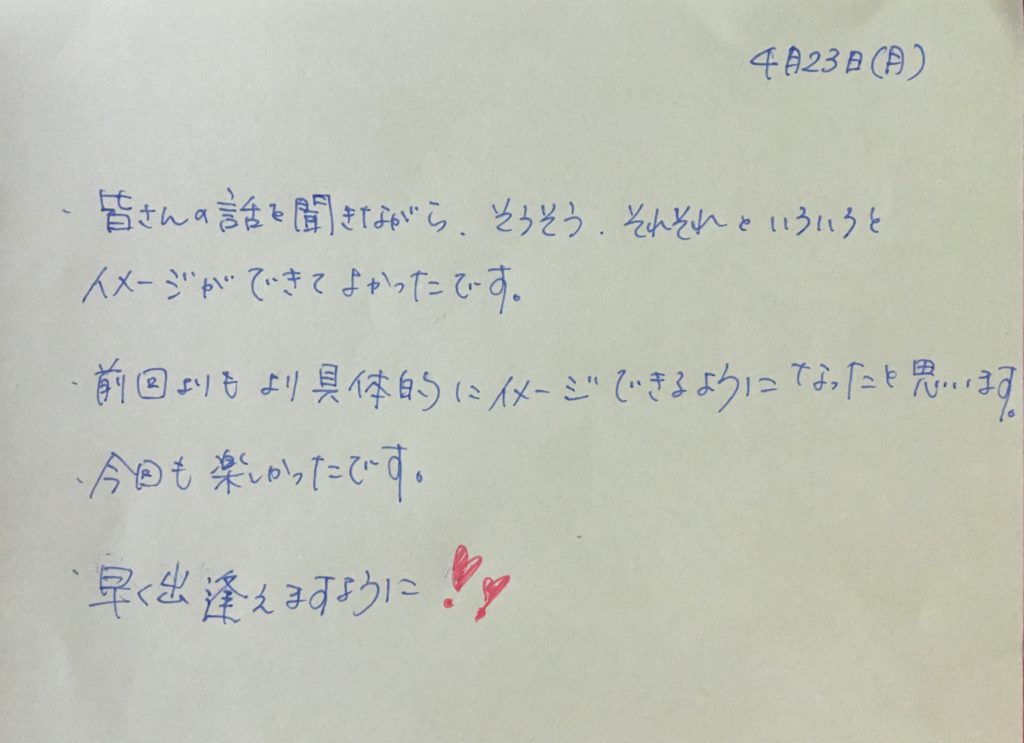 4月23日(月)
・皆さんの話を聞きながら、そうそう、それそれといろいろと
イメージができてよかったです。
・前回よりもより具体的にイメージできるようになったと思います。
・今回も楽しかったです。
・早く出逢えますように!!